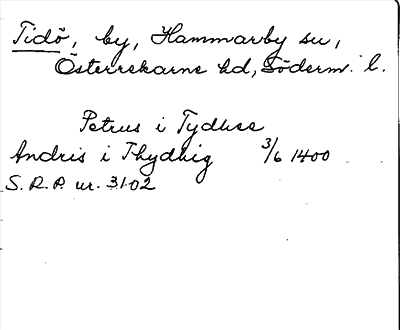 Tidö, by, Hammarby sn,
Österrekarne hd, Söderm. l.
Petrus i Tydhøø
Andris i Thydhig 3/6 1400
S. R. P. nr. 3102